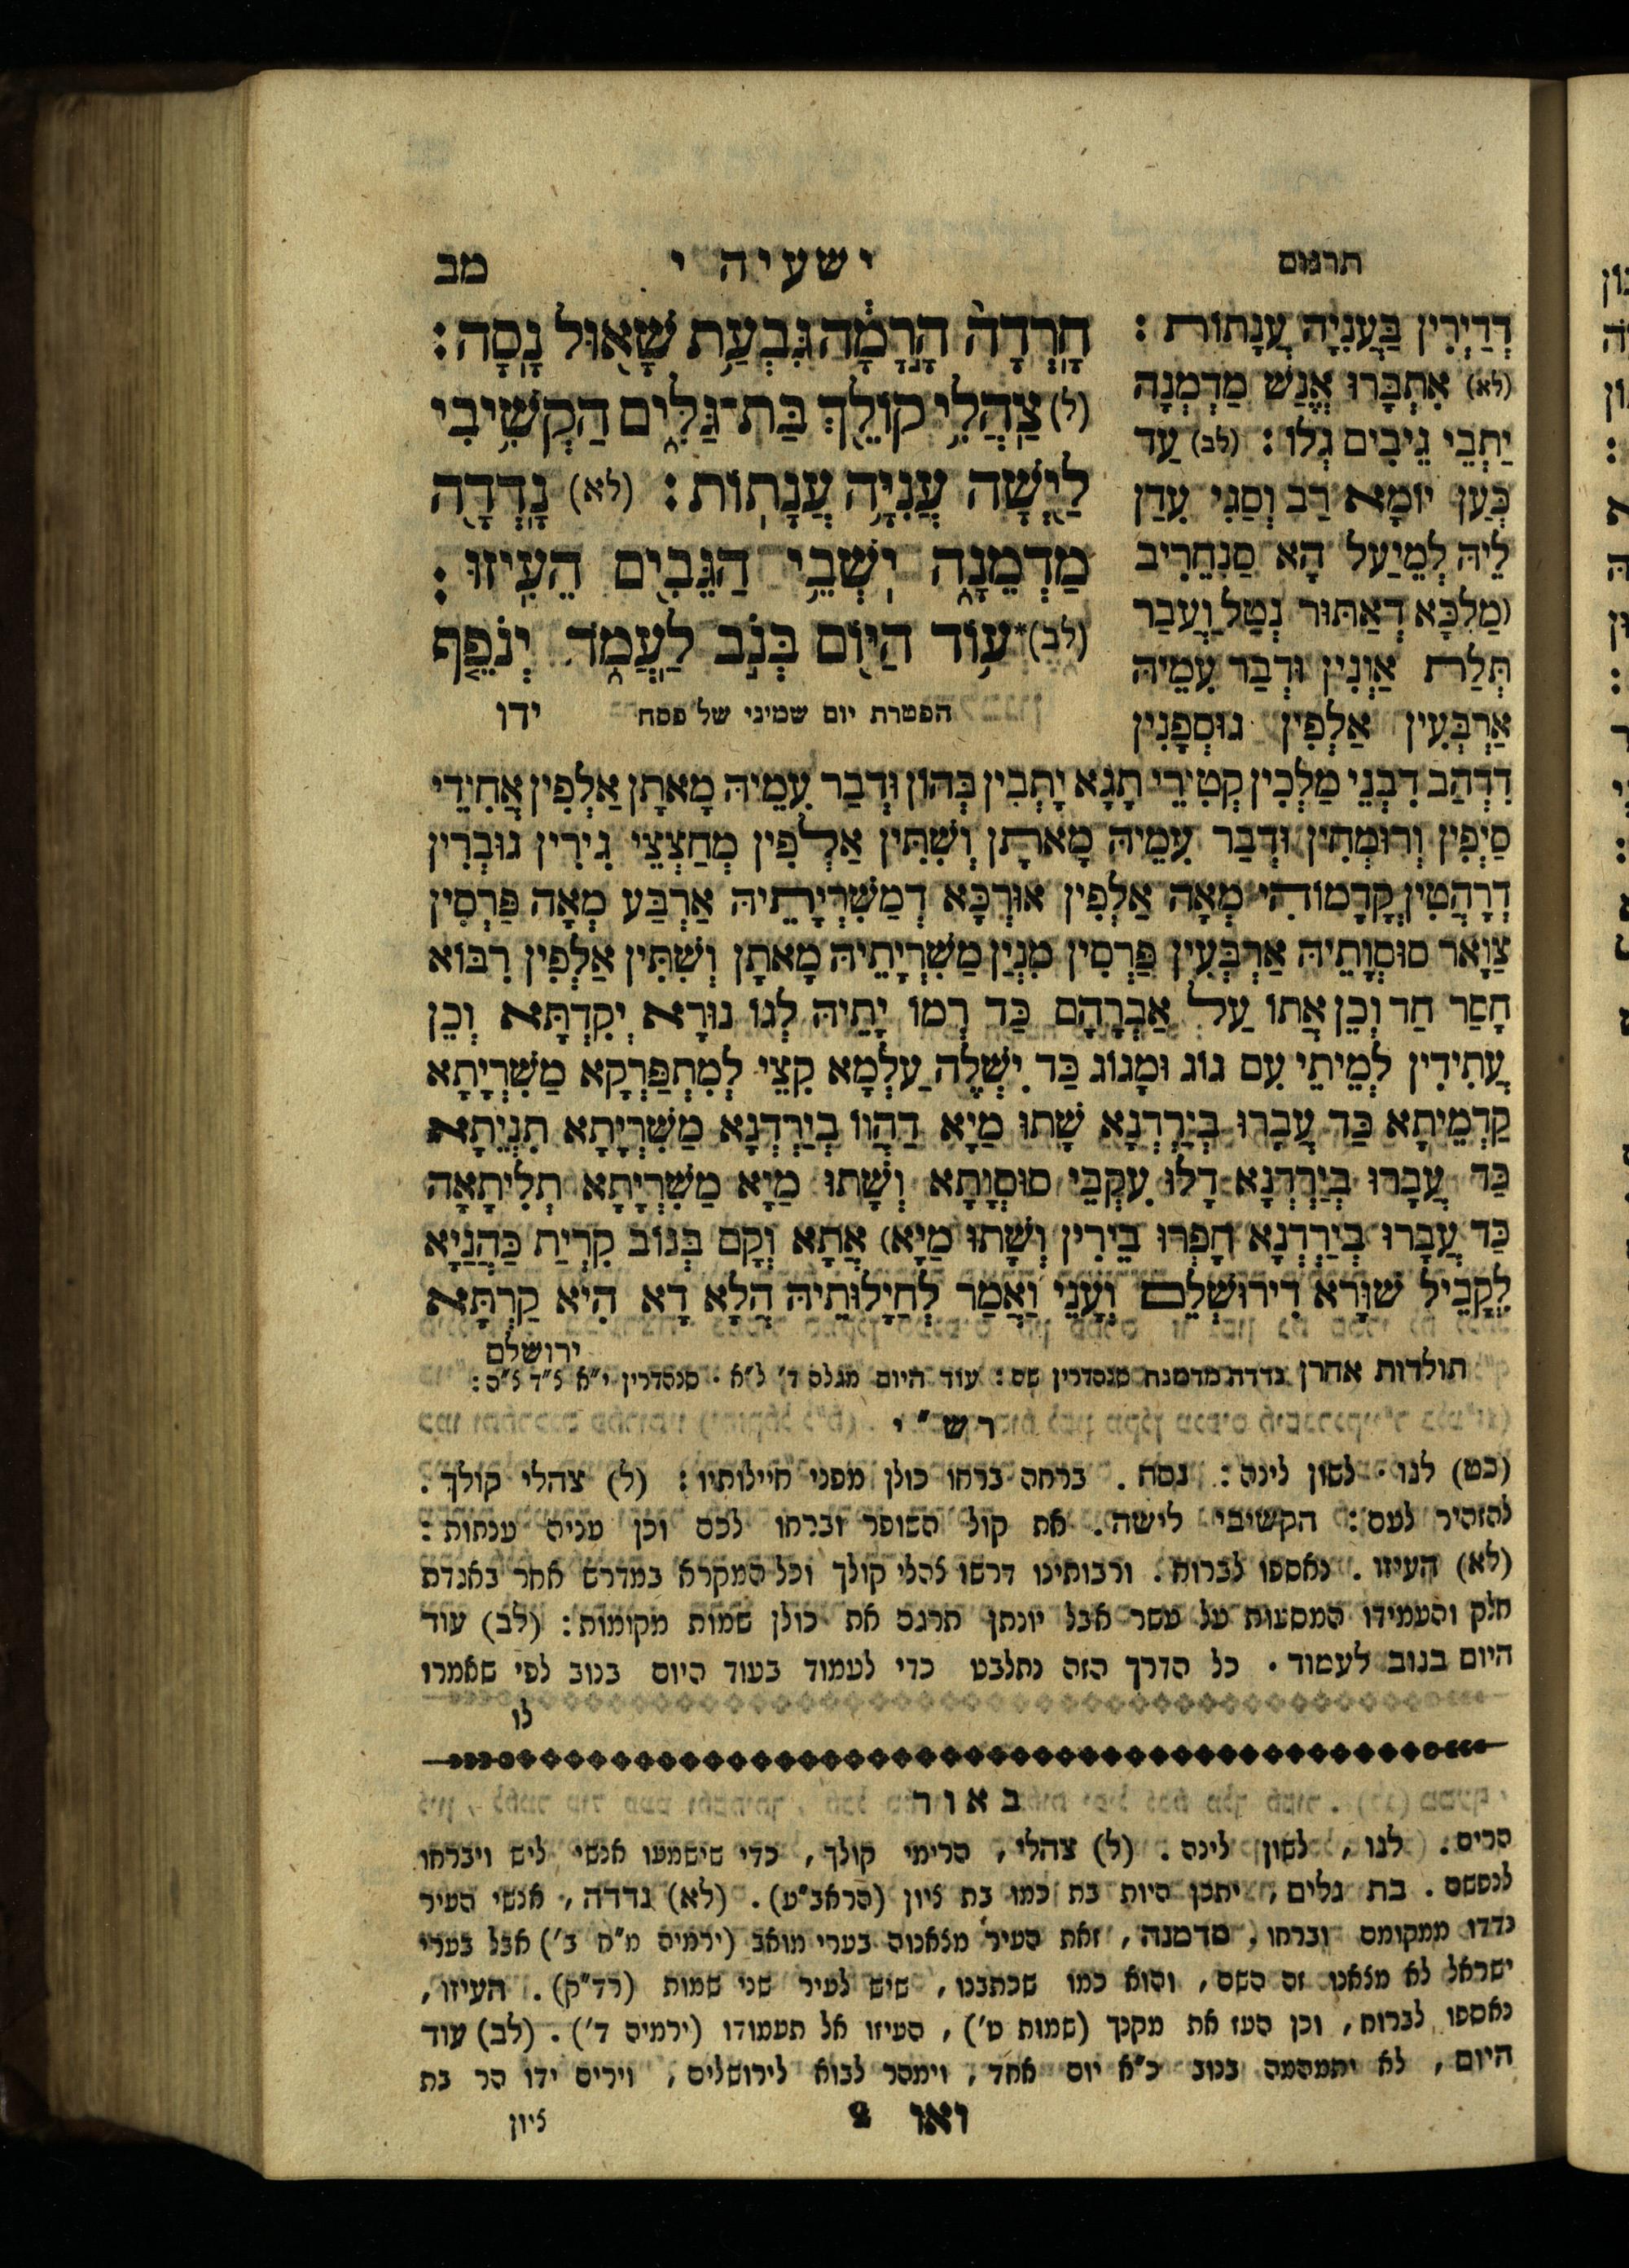 תרגום
ישעיה י
מב
חָֽרְדָה֙ הָֽרָמָ֔ה גִּבְעַ֥ת שָׁא֖וּל נָֽסָה׃
(ל) צַֽהֲלִ֥י קוֹלֵ֖ךְ בַּת־גַּלִּ֑ים הַקְשִׁ֥יבִי
לַ֖יְשָׁה עֲנִיָּ֥ה עֲנָתֽוֹת׃ (לא) נָֽדְדָ֖ה
מַדְמֵנָ֑ה יֹשְׁבֵ֥י הַגֵּבִ֖ים הֵעִֽיזוּ׃
(לב)* ע֥וֹד הַיּ֖וֹם בְּנֹ֣ב לַֽעֲמֹ֑ד יְנֹפֵ֤ף
הפטרת יום שמיני של פסח
ידו
דְּדַיְרִין בַּעֲנִיָה עֲנָתוֹת׃
(לא) אִתְבָּרוּ אֱנַשׁ מַדְמְנָה
יַתְבֵי גֵיבִים גְלוֹ׃ (לב) עַד
כְּעַן יוֹמָא רַב וְסַגִי עִדַן
לֵיהּ לְמֵיעַל הָא סַנְחֵרִיב
(מַלְכָּא דְאַתּוּר נְטַל וַעֲבַר
תְּלַת אַוְנִין וּדְבַר עִמֵיהּ
אַרְבְּעִין אַלְפִין גוּסְפָּנִין
דִדְהַב דִבְנֵי מַלְכִין קְטִירֵי תָגָא יָתְבִין בְּהוֹן וּדְבַר עִמֵיהּ מָאתָן אַלְפִין אֲחִידֵי
סַיְפִין וְרוּמְחִין וּדְבַר עִמֵיהּ מָאתָן וְשִׁתִּין אַלְפִין מְחַצְצֵי גִירִין גוּבְרִין
דְרָהֲטִין קֳדָמוֹהִי מְאָה אַלְפִין אוּרְכָּא דְמַשִׁרְיָתֵיהּ אַרְבַּע מְאָה פַּרְסִין
צַוָאר סוּסְוָתֵיהּ אַרְבְּעִין פַּרְסִין מִנְיַן מַשִׁרְיָתֵיהּ מָאתָן וְשִׁתִּין אַלְפִין רִבּוֹא
חָסַר חַד וְכֵן אֲתוֹ עַל אַבְרָהָם כַּד רְמוֹ יָתֵיהּ לְגוֹ נוּרָא יְקִדְתָּא וְכֵן
עֲתִידִין לְמֵיתֵי עִם גוֹג וּמָגוֹג כַּד יִשְׁלֶה עַלְמָא קִצֵי לְמִתְפַּרְקָא מַשִׁרְיָתָא
קַדְמֵיתָא כַּד עֲבָרוּ בְּיַרְדְנָא שָׁתוּ מַיָא דַהֲווֹ בְּיַרְדְנָא מַשִׁרְיָתָא תִנְיֵתָא
כַּד עֲבָרוּ בְּיַרְדְנָא דָלוּ עִקְבֵי סוּסְוָתָא וְשָׁתוּ מַיָא מַשִׁרְיָתָא תְלִיתָאָה
כַּד עֲבָרוּ בְּיַרְדְנָא חָפְרוּ בֵּירִין וְשָׁתוּ מַיָא) אֲתָא וְקָם בְּנוֹב קִרְיַת כַּהֲנַיָא
לְקָבֵיל שׁוּרָא דִירוּשְׁלֵם וְעָנֵי וַאֲמַר לְחֵילָוּתֵיהּ הֲלָא דָא הִיא קַרְתָּא
ירושלם
תולדות אחרן נדדה מדמנה סנהדרין שם׃ עוד היום מגלה ד' ל"א · סנהדרין י"א צ"ד צ"ה׃
רש"י
(כט) לנו · לשון לינה׃ נסה . ברחה ברחו כולן מפני חיילותיו׃ (ל) צהלי קולך .
להזהיר לעם׃ הקשיבי לישה . את קול השופר וברחו לכם וכן עניה ענתות׃
(לא) העיזו . נאספו לברוח . ורבותינו דרשו צהלי קולך וכל המקרא במדרש אחר באגדת
חלק והעמידו המסעות על עשר אבל יונתן תרגם את כולן שמות מקומות׃ (לב) עוד
היום בנוב לעמוד · כל הדרך הזה נתלבט כדי לעמוד בעוד היום בנוב לפי שאמרו
לו
באור
הרים . לנו , לשון לינה . (ל) צהלי , הרימי קולך , כדי שישמעו אנשי ליש ויברחו
לנפשם . בת גלים , יתכן היות בת כמו בת ציון (הראב"ע) . (לא) נדדה , אנשי העיר
נדדו ממקומם וברחו , מדמנה , זאת העיר מצאנוה בערי מואב (ירמיה מ"ח ב') אבל בערי
ישראל לא מצאנו זה השם , והוא כמו שכתבנו , שיש לעיר שני שמות (רד"ק) . העיזו ,
נאספו לברוח , וכן העז את מקנך (שמות ט') , העיזו אל תעמודו (ירמיה ד') . (לב) עוד
היום , לא יתמהמה בנוב כ"א יום אחד , וימהר לבוא לירושלים , וירים ידו הר בת
ואו 2
ציון